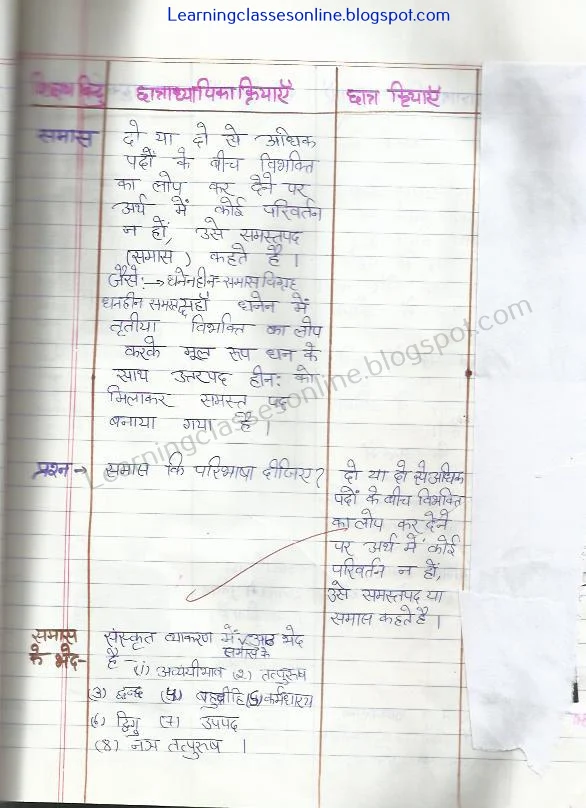 Learningclassesonline.blogspot.com
शिक्षण बिन्दु छात्राध्यापिका क्रियाएँ छात्रा क्रियाएँ
समास दो या दो से अधिक
पदों के बीच विभक्ति
का लोप कर देने पर
अर्थ में कोई परिवर्तन
न हों, उसे समस्तपद
(समास) कहते है।
जैसे:→ धनेनहीन-समास विग्रह
धनहीन समस्त यहाँ धनेन में
तृतीया विभक्ति का लोप
करके मूल रुप धन के
साथ उत्तरपद हीन: को
मिलाकर समस्त पद
बनाया गया है।
Learningclassesonline.blogspot.com
प्रश्न→ समास कि परिभाषा दीजिए?
दो या दो से अधिक
पदों के बीच विभक्ति
का लोप कर देने
पर अर्थ में कोई
परिवर्तन न हों,
उसे समस्तपद या
समास कहते है।
समास के भेद- संस्कृत व्याकरण में समास के आठ भेद
है- (1) अव्ययीभाव (2) तत्पुरुष
(3) द्वन्द्व (4) बहुव्रीहि (5) कर्मधारय
(6) द्विगु (7) उपपद
(8) नञ तत्पुरुष ।